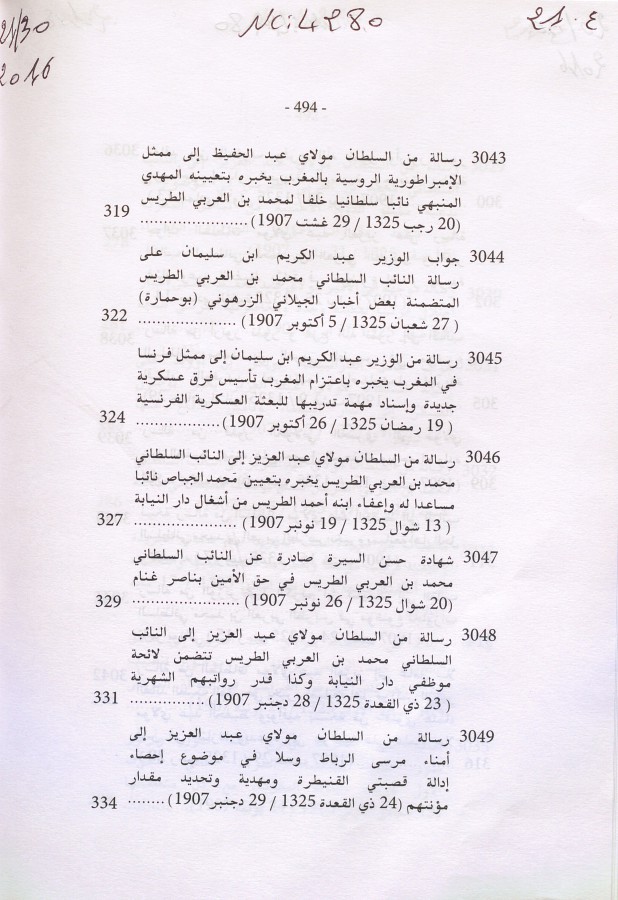 21/30
2016
NC: 4280
21. ع
- 494 -
3043 رسالة من السلطان مولاي عبد الحفيظ إلى ممثل
الإمبراطورية الروسية بالمغرب يخبره بتعيينه المهدي
المنبهي نائبا سلطانيا خلفا لمحمد بن العربي الطريس
(20 رجب 1325 / 29 غشت 1907)...................... 319
3044 جواب الوزير عبد الكريم ابن سليمان على
رسالة النائب السلطاني محمد بن العربي الطريس
المتضمنة بعض أخبار الجيلاني الزرهوني (بوحمارة)
( 27 شعبان 1325 / 5 أكتوبر 1907) .................... 322
3045 رسالة من الوزير عبد الكريم ابن سليمان إلى ممثل فرنسا
في المغرب يخبره باعتزام المغرب تأسيس فرق عسكرية
جديدة وإسناد مهمة تدريبها للبعثة العسكرية الفرنسية
( 19 رمضان 1325 / 26 أكتوبر 1907)................. 324
3046 رسالة من السلطان مولاي عبد العزيز إلى النائب السلطاني
محمد بن العربي الطريس يخبره بتعيين مَحمد الجباص نائبا
مساعدا له وإعفاء ابنه أحمد الطريس من أشغال دار النيابة
( 13 شوال 1325 / 19 نونبر1907) ..................... 327
3047 شهادة حسن السيرة صادرة عن النائب السلطاني
محمد بن العربي الطريس في حق الأمين بناصر غنام
(20 شوال 1325 / 26 نونبر 1907) ...................... 329
3048 رسالة من السلطان مولاي عبد العزيز إلى النائب
السلطاني محمد بن العربي الطريس تتضمن لائحة
موظفي دار النيابة وكذا قدر رواتبهم الشهرية
( 23 ذي القعدة 1325 / 28 دجنبر 1907) ............... 331
3049 رسالة من السلطان مولاي عبد العزيز إلى
أمناء مرسى الرباط وسلا في موضوع إحصاء
إدالة قصبتي القنيطرة ومهدية وتحديد مقدار
مؤنتهم (24 ذي القعدة 1325 / 29 دجنبر1907)........ 334